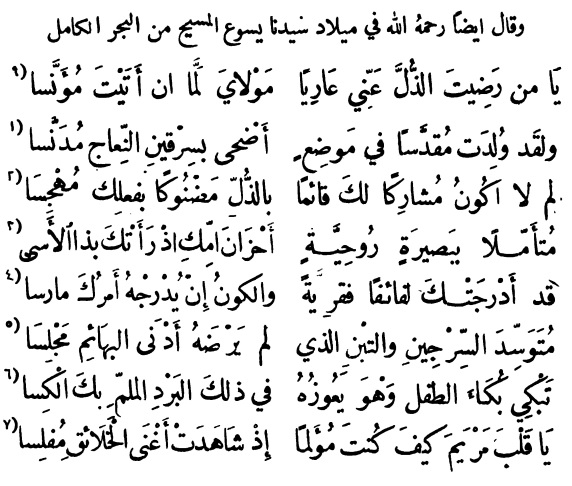 وقال ايضاً رحمهُ الله في ميلاد سيدنا يسوع المسيح من البحر الكامل
يَا من رَضِيتَ الذُّلَّ عَنّي عَارِيًا مَوْلايَ لَمَّا ان أَتَيْتَ مُؤَنَّسا (٩
ولقَد وُلِدَت مُقَدَّسًا في مَوضِعٍ أَضْحى بسِرْقينِ النِّعاجِ مُدَنَّسا (١
لِم لا اكونُ مُشارِكًا لكَ قائمًا بالذُّلّ مَضْنُوكًا بفعلِك مُهْجِسَا (٢
مُتأمّلًا ببَصيرَةٍ رُوحِيَّةٍ أَحْزانَ امِّكَ اذ رَأَتْكَ بذا الأَسى (٣
قد أَدْرَجَتْكَ لفائفًا فقريةً والكونُ إِنْ يُدْرِجْهُ أَمرُكَ مارسا (٤
مُتَوَسِّدَ السِّرْجينِ والتبْنِ الذي لم يَرْضَهُ أَدْنَى البهائمِ مَجْلِسَا (٥
تَبْكي بُكَاءَ الطفْل وَهْوَ يَعُوزُهُ في ذلكَ البَرْدِ الملمّ بكَ الْكِسا (٦
يَا قَلْبَ مَرْيَمَ كيفَ كُنتَ مُؤَلمًا إِذْ شاهَدَتْ أَغْنَى الْخَلائقِ مُفلِسا (٧